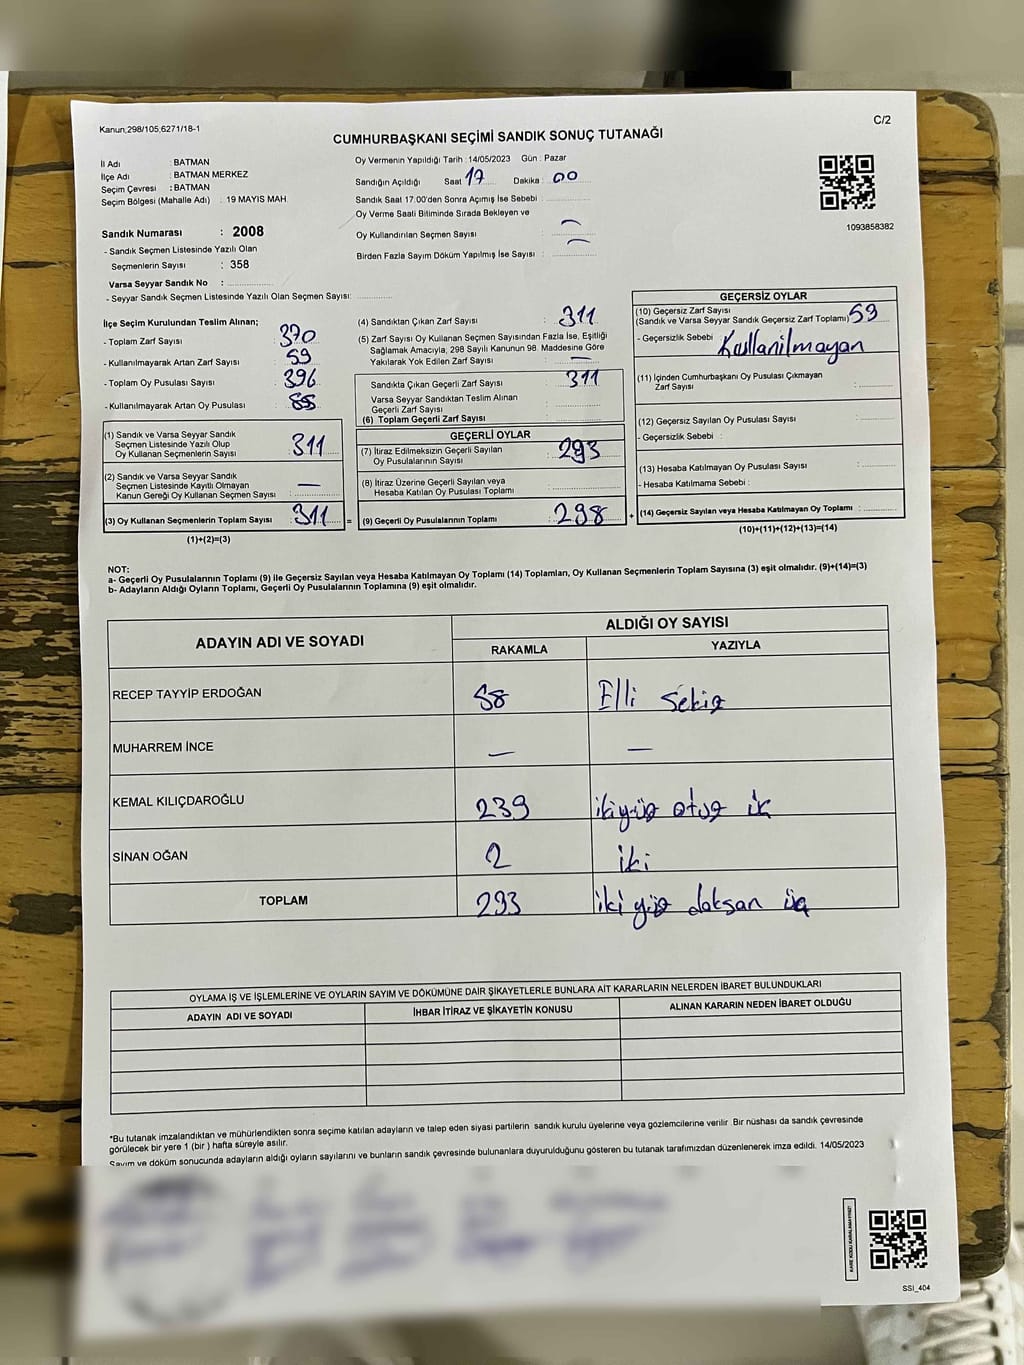 Kanun;298/105,6271/18-1
C/2
CUMHURBAŞKANI SEÇİMİ SANDIK SONUÇ TUTANAĞI
İl Adı : BATMAN
İlçe Adı : BATMAN MERKEZ
Seçim Çevresi : BATMAN
Seçim Bölgesi (Mahalle Adı) : 19 MAYIS MAH.
Sandık Numarası : 2008
- Sandık Seçmen Listesinde Yazılı Olan
Seçmenlerin Sayısı : 358
Varsa Seyyar Sandık No :
- Seyyar Sandık Seçmen Listesinde Yazılı Olan Seçmen Sayısı:
Oy Vermenin Yapıldığı Tarih : 14/05/2023 Gün : Pazar
Sandığın Açıldığı Saat 17 Dakika : 00
Sandık Saat 17:00'den Sonra Açılmış İse Sebebi :
Oy Verme Saati Bitiminde Sırada Bekleyen ve
Oy Kullandırılan Seçmen Sayısı : —
Birden Fazla Sayım Döküm Yapılmış İse Sayısı : —
1093858382
İlçe Seçim Kurulundan Teslim Alınan;
- Toplam Zarf Sayısı : 370
- Kullanılmayarak Artan Zarf Sayısı : 59
- Toplam Oy Pusulası Sayısı : 396
- Kullanılmayarak Artan Oy Pusulası :
(1) Sandık ve Varsa Seyyar Sandık
Seçmen Listesinde Yazılı Olup
Oy Kullanan Seçmenlerin Sayısı : 311
(2) Sandık ve Varsa Seyyar Sandık
Seçmen Listesinde Kayıtlı Olmayan
Kanun Gereği Oy Kullanan Seçmen Sayısı : —
(3) Oy Kullanan Seçmenlerin Toplam Sayısı : 311 =
(1)+(2)=(3)
(4) Sandıktan Çıkan Zarf Sayısı : 311
(5) Zarf Sayısı Oy Kullanan Seçmen Sayısından Fazla İse, Eşitliği
Sağlamak Amacıyla; 298 Sayılı Kanunun 98. Maddesine Göre
Yakılarak Yok Edilen Zarf Sayısı : —
Sandıkta Çıkan Geçerli Zarf Sayısı : 311
Varsa Seyyar Sandıktan Teslim Alınan
Geçerli Zarf Sayısı :
(6) Toplam Geçerli Zarf Sayısı :
GEÇERLİ OYLAR
(7) İtiraz Edilmeksizin Geçerli Sayılan
Oy Pusulalarının Sayısı : 293
(8) İtiraz Üzerine Geçerli Sayılan veya
Hesaba Katılan Oy Pusulası Toplamı :
(9) Geçerli Oy Pusulalarının Toplamı : 298 +
GEÇERSİZ OYLAR
(10) Geçersiz Zarf Sayısı
(Sandık ve Varsa Seyyar Sandık Geçersiz Zarf Toplamı) : 59
- Geçersizlik Sebebi : Kullanilmayan
(11) İçinden Cumhurbaşkanı Oy Pusulası Çıkmayan
Zarf Sayısı :
(12) Geçersiz Sayılan Oy Pusulası Sayısı :
- Geçersizlik Sebebi :
(13) Hesaba Katılmayan Oy Pusulası Sayısı :
- Hesaba Katılmama Sebebi :
(14) Geçersiz Sayılan veya Hesaba Katılmayan Oy Toplamı :
(10)+(11)+(12)+(13)=(14)
NOT:
a- Geçerli Oy Pusulalarının Toplamı (9) ile Geçersiz Sayılan veya Hesaba Katılmayan Oy Toplamı (14) Toplamları, Oy Kullanan Seçmenlerin Toplam Sayısına (3) eşit olmalıdır. (9)+(14)=(3)
b- Adayların Aldığı Oyların Toplamı, Geçerli Oy Pusulalarının Toplamına (9) eşit olmalıdır.
ADAYIN ADI VE SOYADI
ALDIĞI OY SAYISI
RAKAMLA YAZIYLA
RECEP TAYYİP ERDOĞAN 58 Elli sekiz
MUHARREM İNCE — —
KEMAL KILIÇDAROĞLU 239 ikiyüz otuz
SİNAN OĞAN 2 iki
TOPLAM 293 iki yüz doksan üç
OYLAMA İŞ VE İŞLEMLERİNE VE OYLARIN SAYIM VE DÖKÜMÜNE DAİR ŞİKAYETLERLE BUNLARA AİT KARARLARIN NELERDEN İBARET BULUNDUKLARI
ADAYIN ADI VE SOYADI İHBAR İTİRAZ VE ŞİKAYETİN KONUSU ALINAN KARARIN NEDEN İBARET OLDUĞU
*Bu tutanak imzalandıktan ve mühürlendikten sonra seçime katılan adayların ve talep eden siyasi partilerin sandık kurulu üyelerine veya gözlemcilerine verilir .Bir nüshası da sandık çevresinde
görülecek bir yere 1 (bir ) hafta süreyle asılır.
Sayım ve döküm sonucunda adayların aldığı oyların sayılarını ve bunların sandık çevresinde bulunanlara duyurulduğunu gösteren bu tutanak tarafımızdan düzenlenerek imza edildi. 14/05/2023
KARE KODU KARALAMAYINIZ!
SSI_404